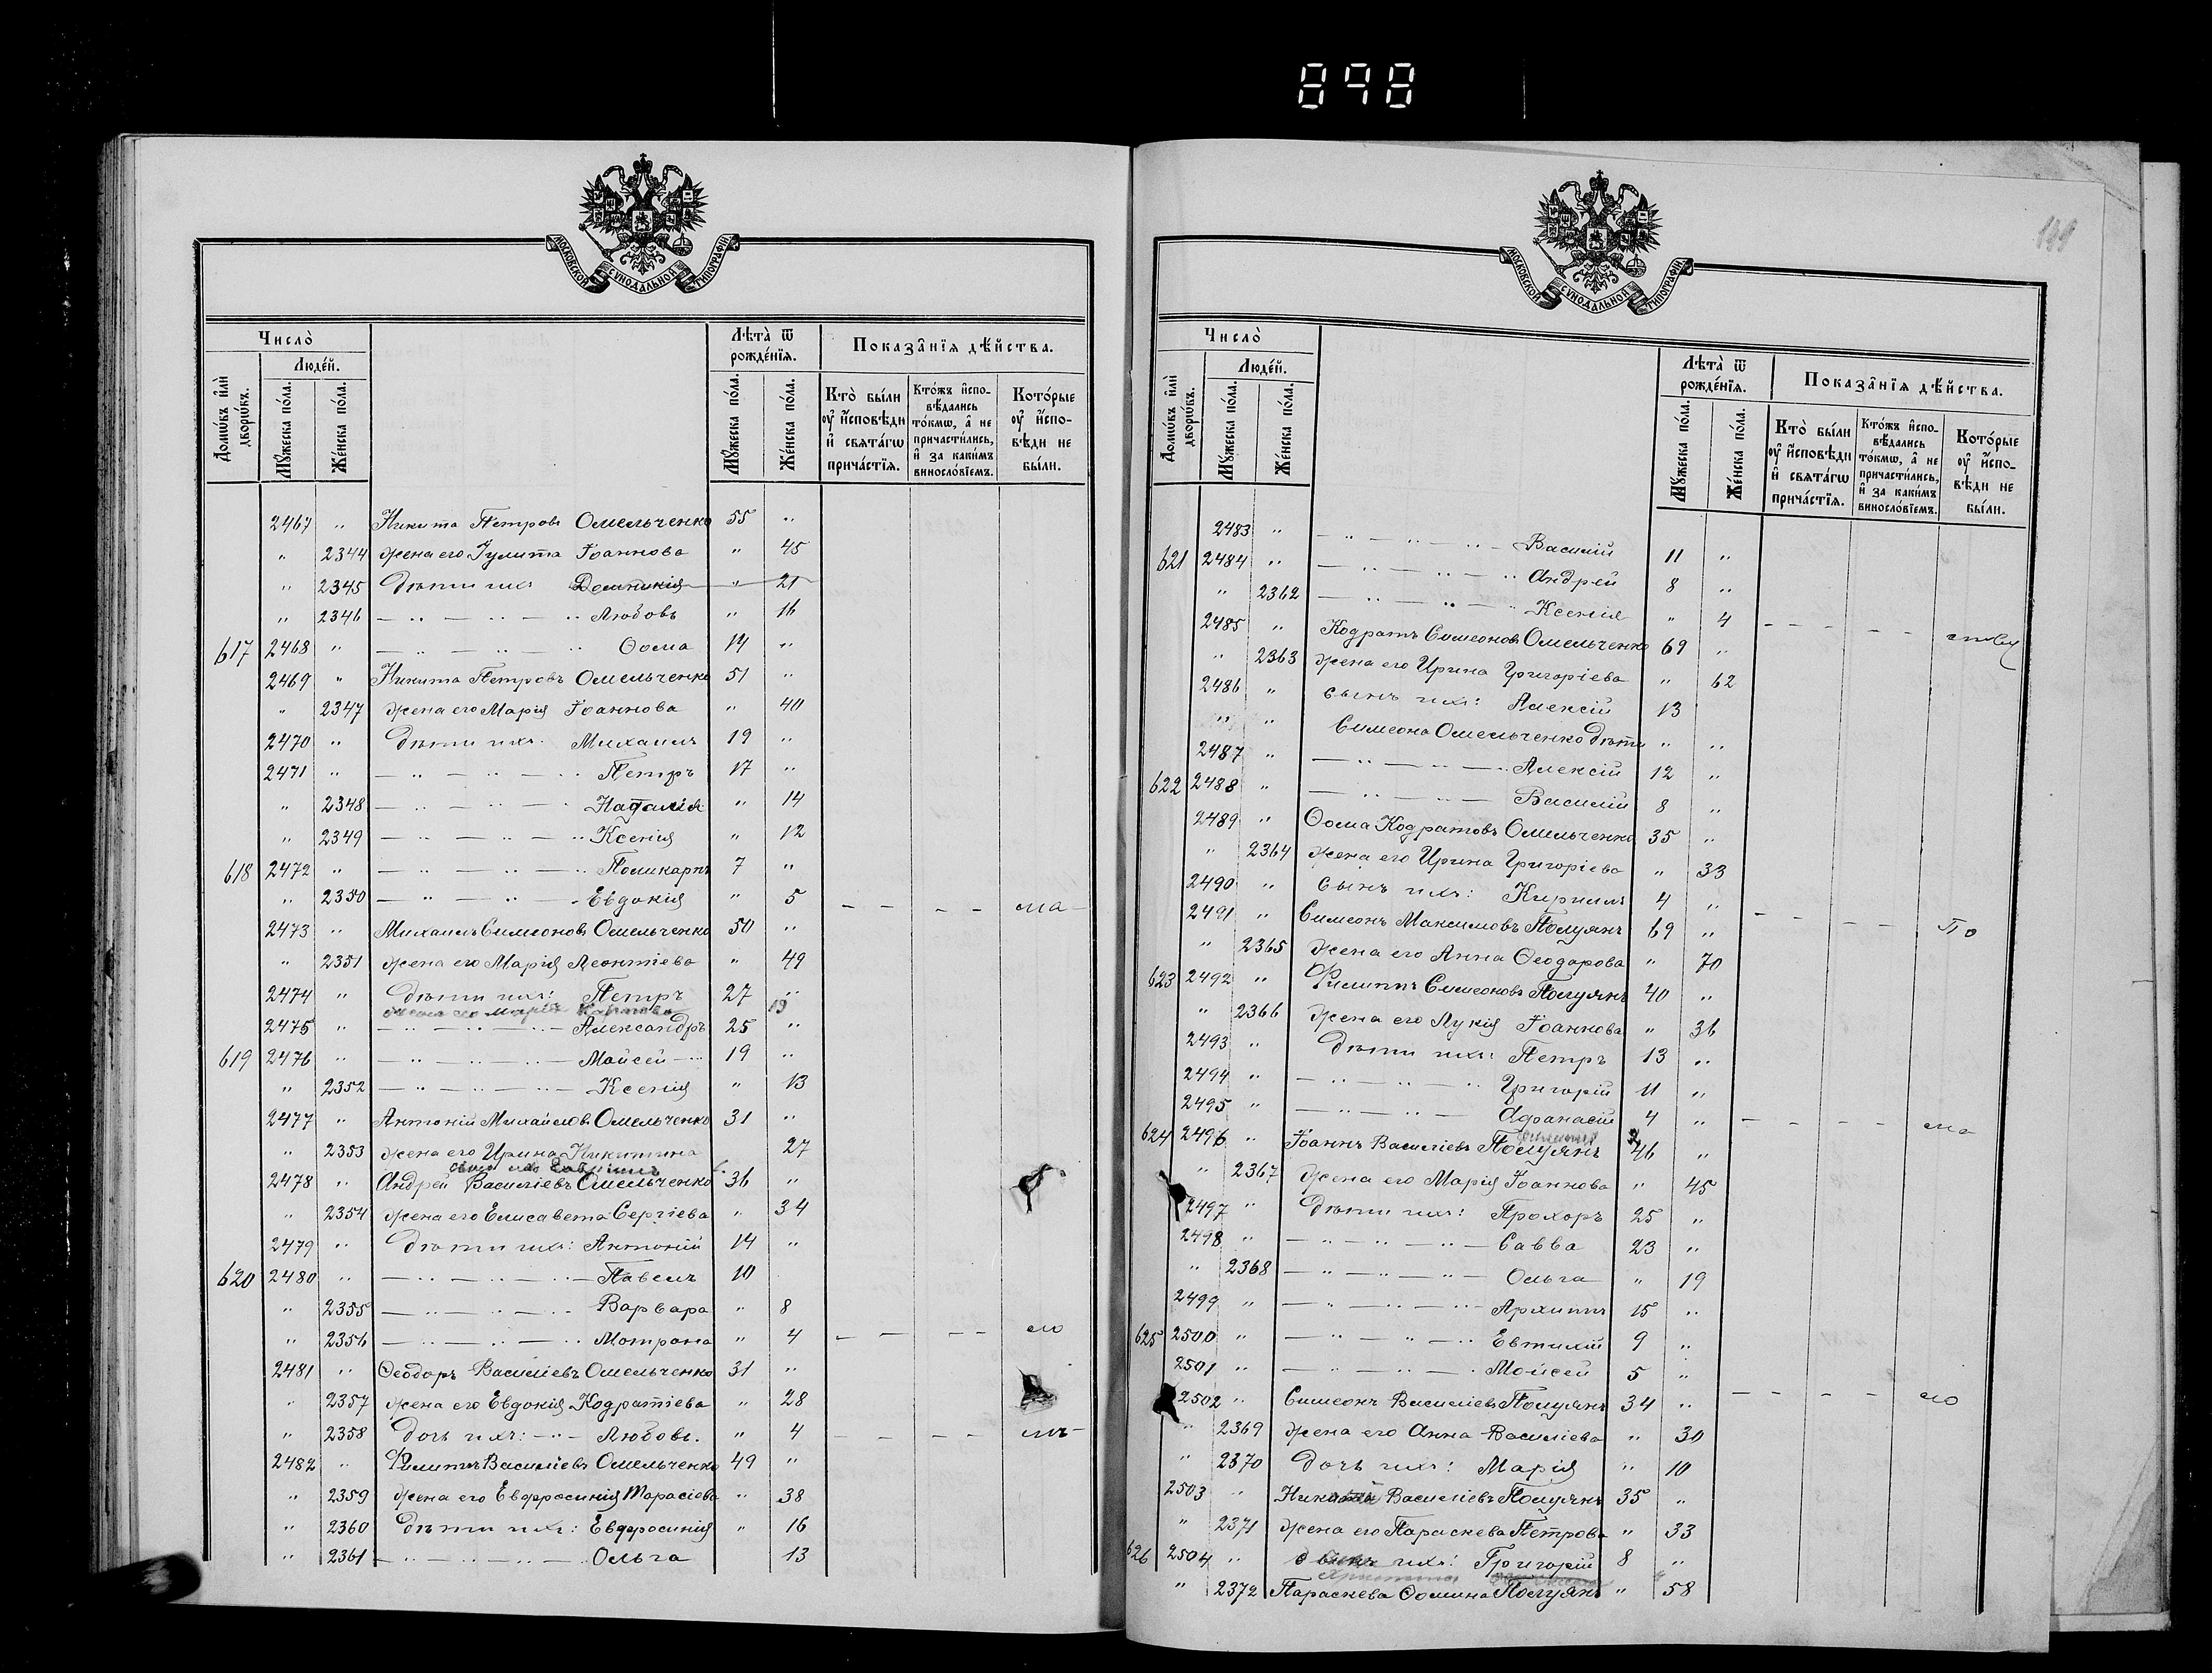 898
МОСКОВСКОЙ СУНОДАЛЬНОЙ ТИПОГРАФІИ
Число̀
Люде́й.
Домѡ́въ и҆лѝ дворѡ́въ.
Мꙋ́жеска по́ла.
Же́нска по́ла.
Лѣ́та ѿ рожде́нїѧ.
Мꙋ́жеска по́ла.
Же́нска по́ла.
Показа̂нїѧ дѣ́йства.
Кто̀ бы́ли оу҆ и҆́сповѣди и҆ свѧта́гѡ прича́стїѧ.
Кто́жъ и҆спо-вѣ́дались то́кмѡ, а҆ не причасти́лись, и҆ за каки́мъ винослові́емъ.
Кото́рые оу҆ и҆́спо-вѣди не бы́ли.
2467 " Никита Петровъ Омельченко 55 "
" 2344 жена его Іулита Іоаннова " 45
" 2345 Дѣти ихъ Домникія " 21
" 2346 — " — " — " Любовь " 16
617 2468 " — " — " — " Ѳома 14 "
2469 " Никита Петровъ Омельченко 51 "
" 2347 жена его Марія Іоаннова " 40
2470 " Дѣти ихъ: Михаилъ 19 "
2471 " — " — " — " Петръ 17 "
" 2348 — " — " — " Наталія " 14
" 2349 — " — " — " Ксенія " 12
618 2472 " — " — " — " Поликарпъ 7 "
" 2350 — " — " — Евдокія " 5 — — — — ма —
2473 " Михаилъ Симеоновъ Омельченко 50 "
" 2351 жена его Марія Леонтіева " 49
2474 " Дѣти ихъ: Петръ 27 "
жена его Марія Карпова 19
2475 " — " — " — " — Александръ 25 "
619 2476 " — " — " — Мойсей — " 19 "
" 2352 — " — " — " — Ксенія " 13
2477 " Антоній Михайловъ Омельченко 31 "
" 2353 жена его Ирина Никитина 27
сынъ ихъ Гавріилъ
2478 " Андрей Василіевъ Омельченко 36 "
" 2354 жена его Елисавета Сергіева " 34
2479 " Дѣти ихъ: Антоній 14 "
620 2480 " — " — " — " — Павелъ 10
" 2355 — " — " — " Варвара " 8
" 2356 — " — " — " Мотрона " 4 — — — —
2481 " Ѳеодоръ Василіевъ Омельченко 31 "
" 2357 жена его Евдокія Кодратіева " 28
" 2358 Дочь ихъ: — " — Любовь. " 4 — — — —
2482 " Филиппъ Василіевъ Омельченко 49 "
" 2359 жена его Евфросинія Тарасіева " 38
" 2360 Дѣти ихъ: Евфросинія " 16
" 2361 — " — " — " — " Ольга 13
МОСКОВСКОЙ СУНОДАЛЬНОЙ ТИПОГРАФІИ
Число̀
Люде́й.
Домѡ́въ и҆лѝ дворѡ́въ.
Мꙋ́жеска по́ла.
Же́нска по́ла.
Лѣ́та ѿ рожде́нїѧ.
Мꙋ́жеска по́ла.
Же́нска по́ла.
Показа̂нїѧ дѣ́йства.
Кто̀ бы́ли оу҆ и҆́сповѣди и҆ свѧта́гѡ прича́стїѧ.
Кто́жъ и҆спо-вѣ́дались то́кмѡ, а҆ не причасти́лись, и҆ за каки́мъ винослові́емъ.
Кото́рые оу҆ и҆́спо-вѣди не бы́ли.
2483 " — " — " — " — Василій 11 "
621 2484 " — " — " — " Андрей 8 "
" 2362 — " — " — " Ксенія " 4 — — — — —
2485 " Кодратъ Симеоновъ Омельченко 69 "
" 2363 жена его Ирина Григоріева " 62
2486 " сынъ ихъ: Алексій 13
" " Симеона Омельченко дѣти " "
2487 " — " — " — " Алексій 12 "
622 2488 " — " — " — Василій 8 "
2489 " Ѳома Кодратовъ Омельченко 35 "
" 2364 жена его Ирина Григоріева " 33
2490 " сынъ ихъ: Кириллъ 4 "
2491 " Симеонъ Максимовъ Полуянъ 69 " — — — — По
" 2365 жена его Анна Ѳеодорова " 70
623 2492 " Филиппъ Симеоновъ Полуянъ 40 "
" 2366 жена его Лукія Іоаннова " 36
2493 " Дѣти ихъ: Петръ 13 "
2494 " — " — " — " Григорій 11 "
2495 " — " — " — Аѳанасій 4 " — — — — ма
624 2496 " Іоаннъ Василіевъ Полуянъ 46 "
" 2367 жена его Марія Іоаннова " 45
2497 " Дѣти ихъ: Прохоръ 25 "
2498 " — " — " — Савва 23 "
" 2368 — " — " — Ольга " 19
2499 " — " — " — " Архипъ 15 "
625 2500 " — " — " — " Евтихій 9 "
2501 " — " — " — " Мойсей 5 "
2502 " Симеонъ Василіевъ Полуянъ 34 " — — — —
" 2369 жена его Анна Василіева " 30
" 2370 Дочь ихъ: Марія " 10
2503 " Василіевъ Полуянъ 35 "
" 2371 жена его Параскева Петрова " 33
626 2504 " сынъ ихъ: Григорій 8 "
Христина
" 2372 Параскева Ѳомина Полуянъ " 58